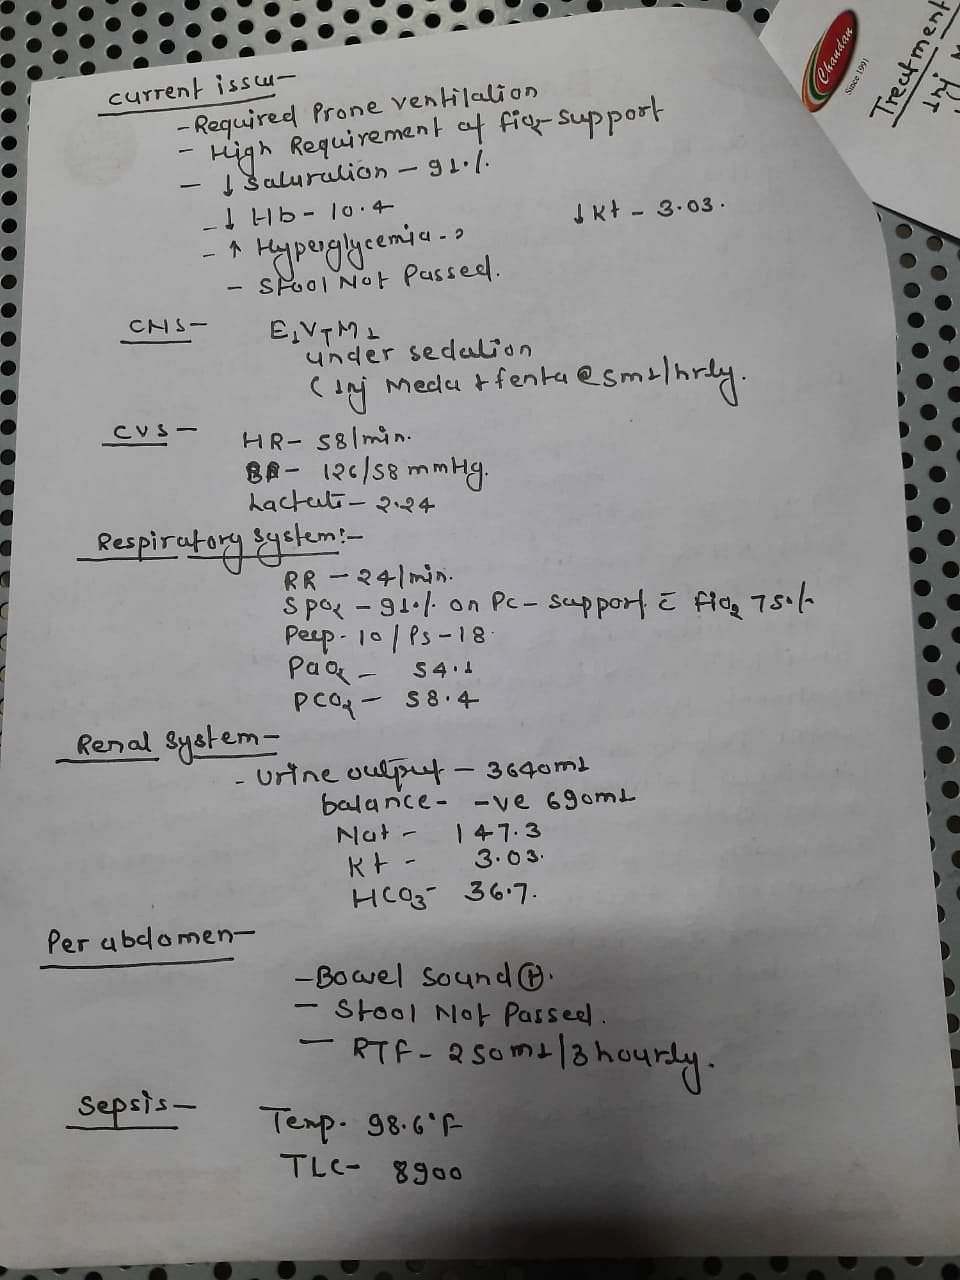 Current issue-
- Required Prone ventilation
- High Requirement of fio2 support
- ↓ Saturation - 91%
- ↓ Hb - 10.4
↓ K+ - 3.03.
- ↑ Hyperglycemia
- Stool Not Passed.
CNS- E1VTM1
under sedation
( Inj Meda + fenta @ 5ml/hrly.
CVS- HR- 58/min.
BP- 126/58 mmHg.
Lactate- 2.24
Respiratory System:-
RR - 24/min.
SpO2 - 91% on Pc- support c̄ fio2 75%
Peep- 10 / Ps-18.
PaO2 - 54.1
PCO2 - 58.4
Renal System-
- Urine output - 3640ml
balance- -ve 690ml
Na+ - 147.3
K+ - 3.03.
HCO3- 36.7.
Per abdomen-
- Bowel Sound ⊕.
- Stool Not Passed.
- RTF- 250ml/3hourly.
Sepsis- Temp- 98.6°F
TLC- 8900
Chandan
Since 1991
Treatment
Inj